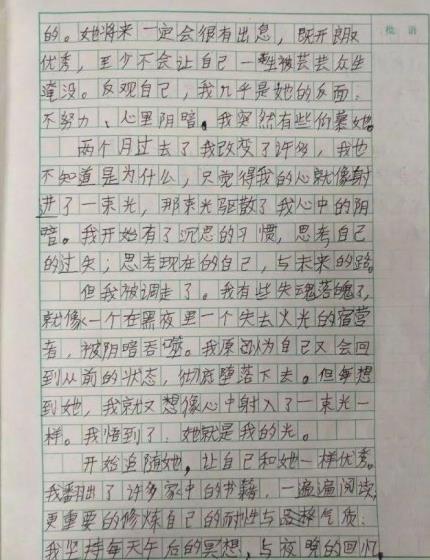 批 语
的。她将来一定会很有出息，既开朗又
优秀，至少不会让自己一生被芸芸众生
淹没。反观自己，我几乎是她的反面：
不努力、心里阴暗。我突然有些仰慕她。
两个月过去了我改变了许多，我也
不知道是为什么，只觉得我的心就像射
进了一束光，那束光驱散了我心中的阴
暗。我开始有了沉思的习惯，思考自己
的过失；思考现在的自己，与未来的路。
但我被调走了。我有些失魂落魄了，
就像一个在黑夜里一个失去火光的宿营
者，被阴暗吞噬。我原以为自己又会回
到从前的状态，彻底堕落下去。但每想
到她，我就又想像心中射入了一束光一
样。我悟到了，她就是我的光。
开始追随她，让自己和她一样优秀。
我翻出了许多家中的书籍，一遍遍阅读，
更重要的修炼自己的耐性与品格气质：
我坚持每天午后的冥想，与夜晚的回忆，